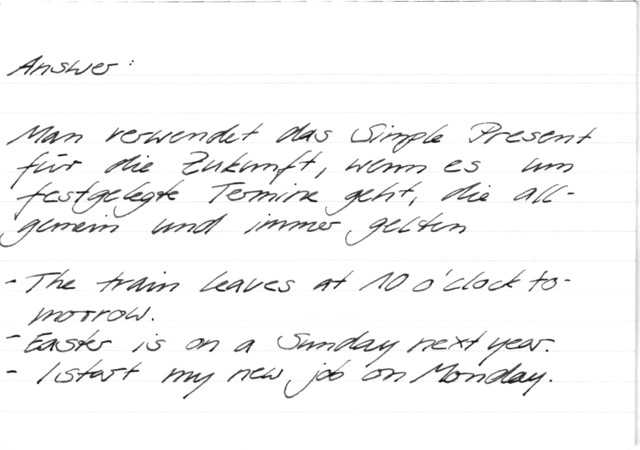 Answer:
Man verwendet das Simple Present
für die Zukunft, wenn es um
festgelegte Termine geht, die all-
gemein und immer gelten
- The train leaves at 10 o'clock to-
morrow.
- Easter is on a Sunday next year.
- I start my new job on Monday.